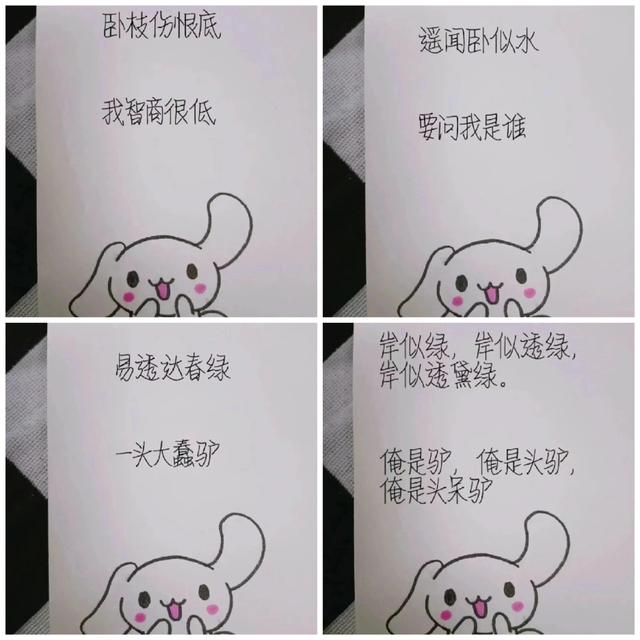 卧枝伤恨底
我智商很低
遥闻卧似水
要问我是谁
易透达春绿
一头大蠢驴
岸似绿，岸似透绿，
岸似透黛绿。
俺是驴，俺是头驴，
俺是头呆驴